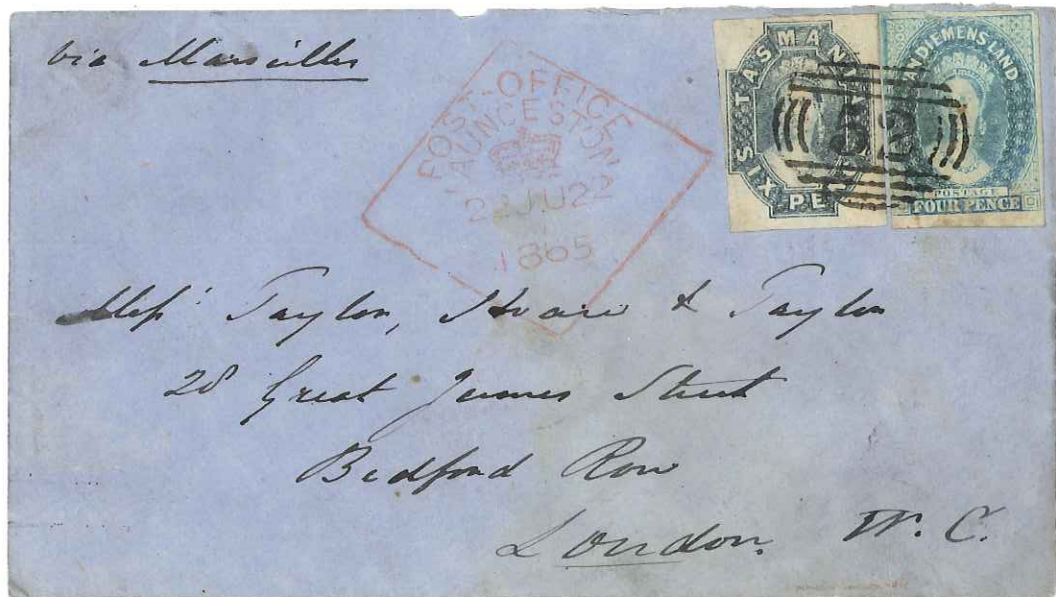 via Marseilles
POST-OFFICE
LAUNCESTON
22 JU 22
1865
TASMANIA
SIX PE
VAN DIEMENS LAND
POSTAGE
FOUR PENCE
52
Messrs Taylor, Hoare & Taylor
28 Great James Street
Bedford Row
London. W. C.